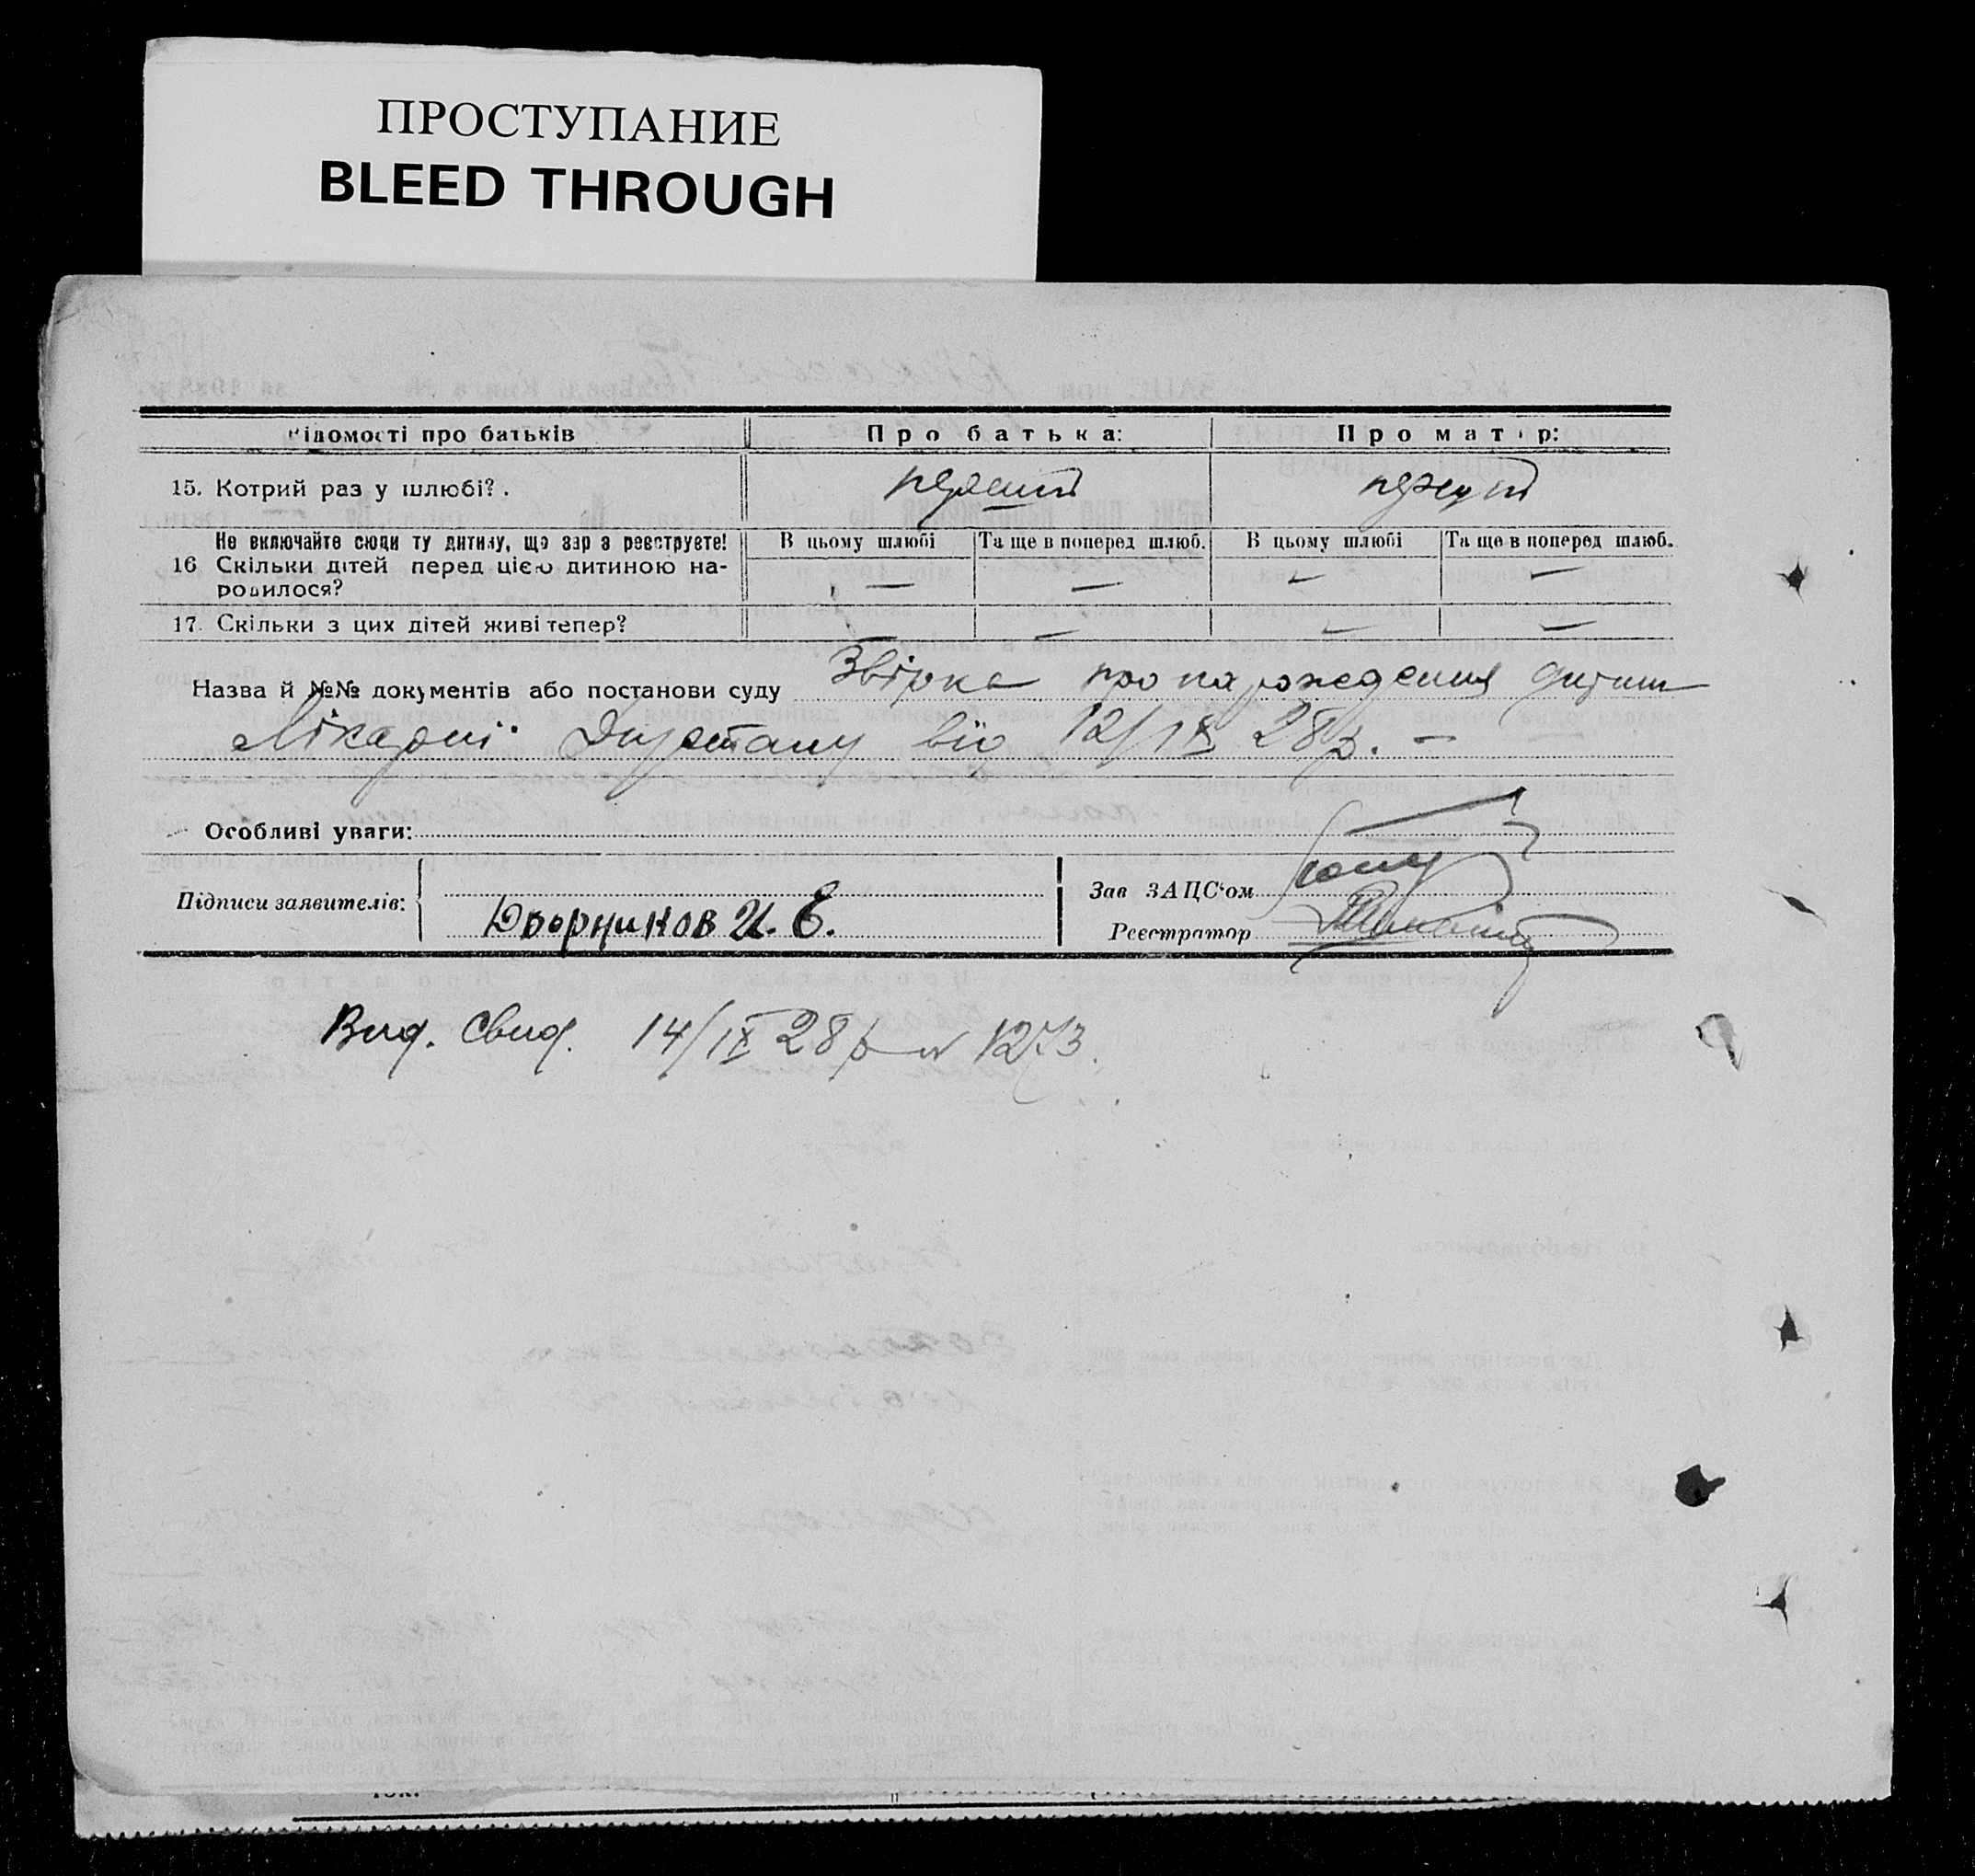 ПРОСТУПАНИЕ
BLEED THROUGH
Відомості про батьків
Про батька:
Про матір:
15. Котрий раз у шлюбі?.
перший
перший
Не включайте сюди ту дитину, що зараз реєструєте!
В цьому шлюбі
Та ще в поперед шлюб.
В цьому шлюбі
Та ще в поперед шлюб.
16 Скільки дітей перед цією дитиною на-
родилося?
—
—
—
—
17. Скільки з цих дітей живі тепер?
—
—
—
Назва й №№ документів або постанови суду про народження
Лікарні від 12/IX 28р. —
Особливі уваги:
Підписи заявителів:
Дворников И. Е.
Зав ЗАЦС'ом
Реєстратор
Вид. Свид. 14/IX 28 р № 1273.